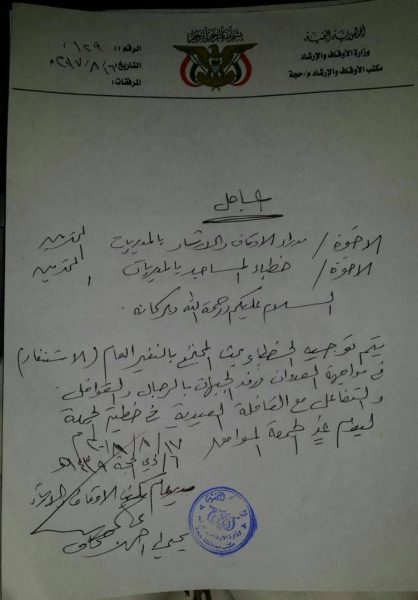 الجمهورية اليمنية
وزارة الأوقاف والإرشاد
مكتب الأوقاف والإرشاد م/حجة
بسم الله الرحمن الرحيم
الرقم: ١٢٩
التاريخ: ١٦ / ٨ / ٢٠١٧م
المرفقات:
الاخوة / مدراء الاوقاف والارشاد بالمديريات المحترمين
الاخوة / خطباء المساجد بالمديريات المحترمين
السلام عليكم ورحمة الله وبركاته
يتم توجيه الخطباء بحث المجتمع بالنفير العام (الاستنفار)
في مواجهة العدوان ورفد الجبهات بالرجال والقوافل
والتفاعل مع القافلة العيدية في خطبة الجمعة
ليوم غدٍ الجمعة الموافق ١٧/٨/
مكتب الاوقاف والارشاد
يحيى